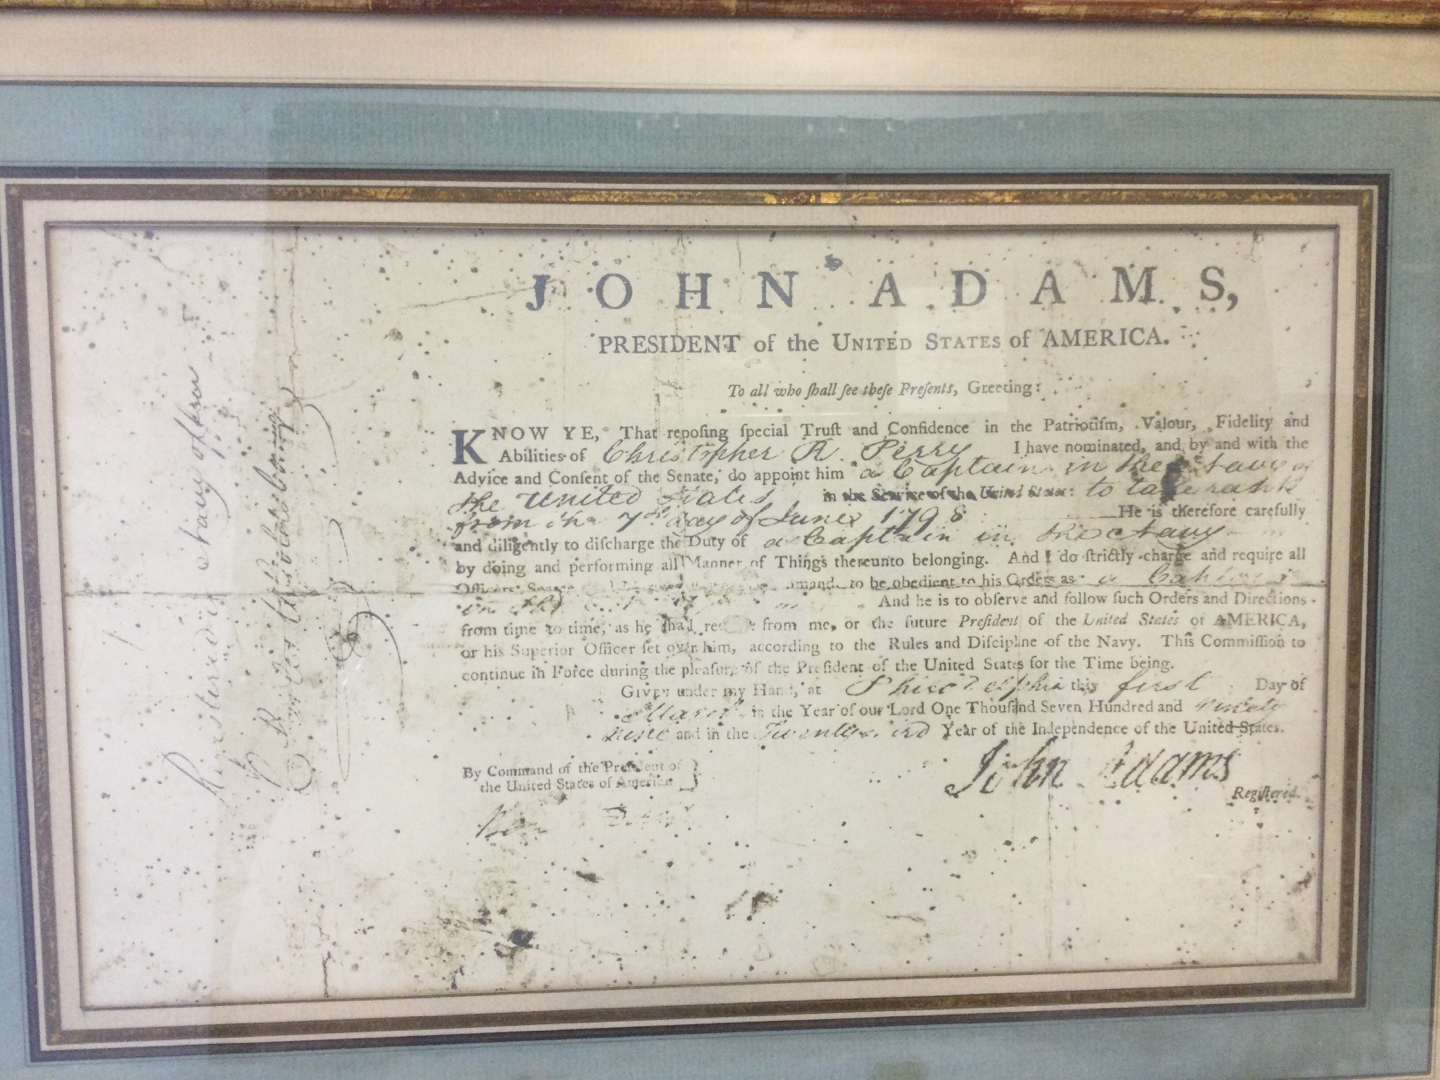 JOHN ADAMS,
PRESIDENT of the UNITED STATES of AMERICA.
To all who ſhall ſee theſe Preſents, Greeting:
KNOW YE, That repoſing ſpecial Truſt and Confidence in the Patriotiſm, Valour, Fidelity and
Abilities of Christopher R. Perry I have nominated, and by and with the
Advice and Conſent of the Senate, do appoint him a Captain in the Navy of
the United States, in the Service of the United States: to take rank
from the 7th day of June 1798 He is therefore carefully
and diligently to diſcharge the Duty of a Captain in the Navy
by doing and performing all Manner of Things thereunto belonging. And I do ſtrictly charge and require all
Officers, to be obedient to his Orders as a Captain
in the And he is to obſerve and follow ſuch Orders and Directions
from time to time, as he ſhall receive from me, or the future Preſident of the United States of AMERICA,
or his Superior Officer ſet over him, according to the Rules and Diſcipline of the Navy. This Commiſſion to
continue in Force during the pleaſure of the Preſident of the United States for the Time being.
GIVEN under my Hand, at Philadelphia this first Day of
March in the Year of our Lord One Thouſand Seven Hundred and ninety
nine and in the Twenty third Year of the Independence of the United States.
John Adams
By Command of the Preſident of
the United States of America
Regiſtered.
Registered in Navy office